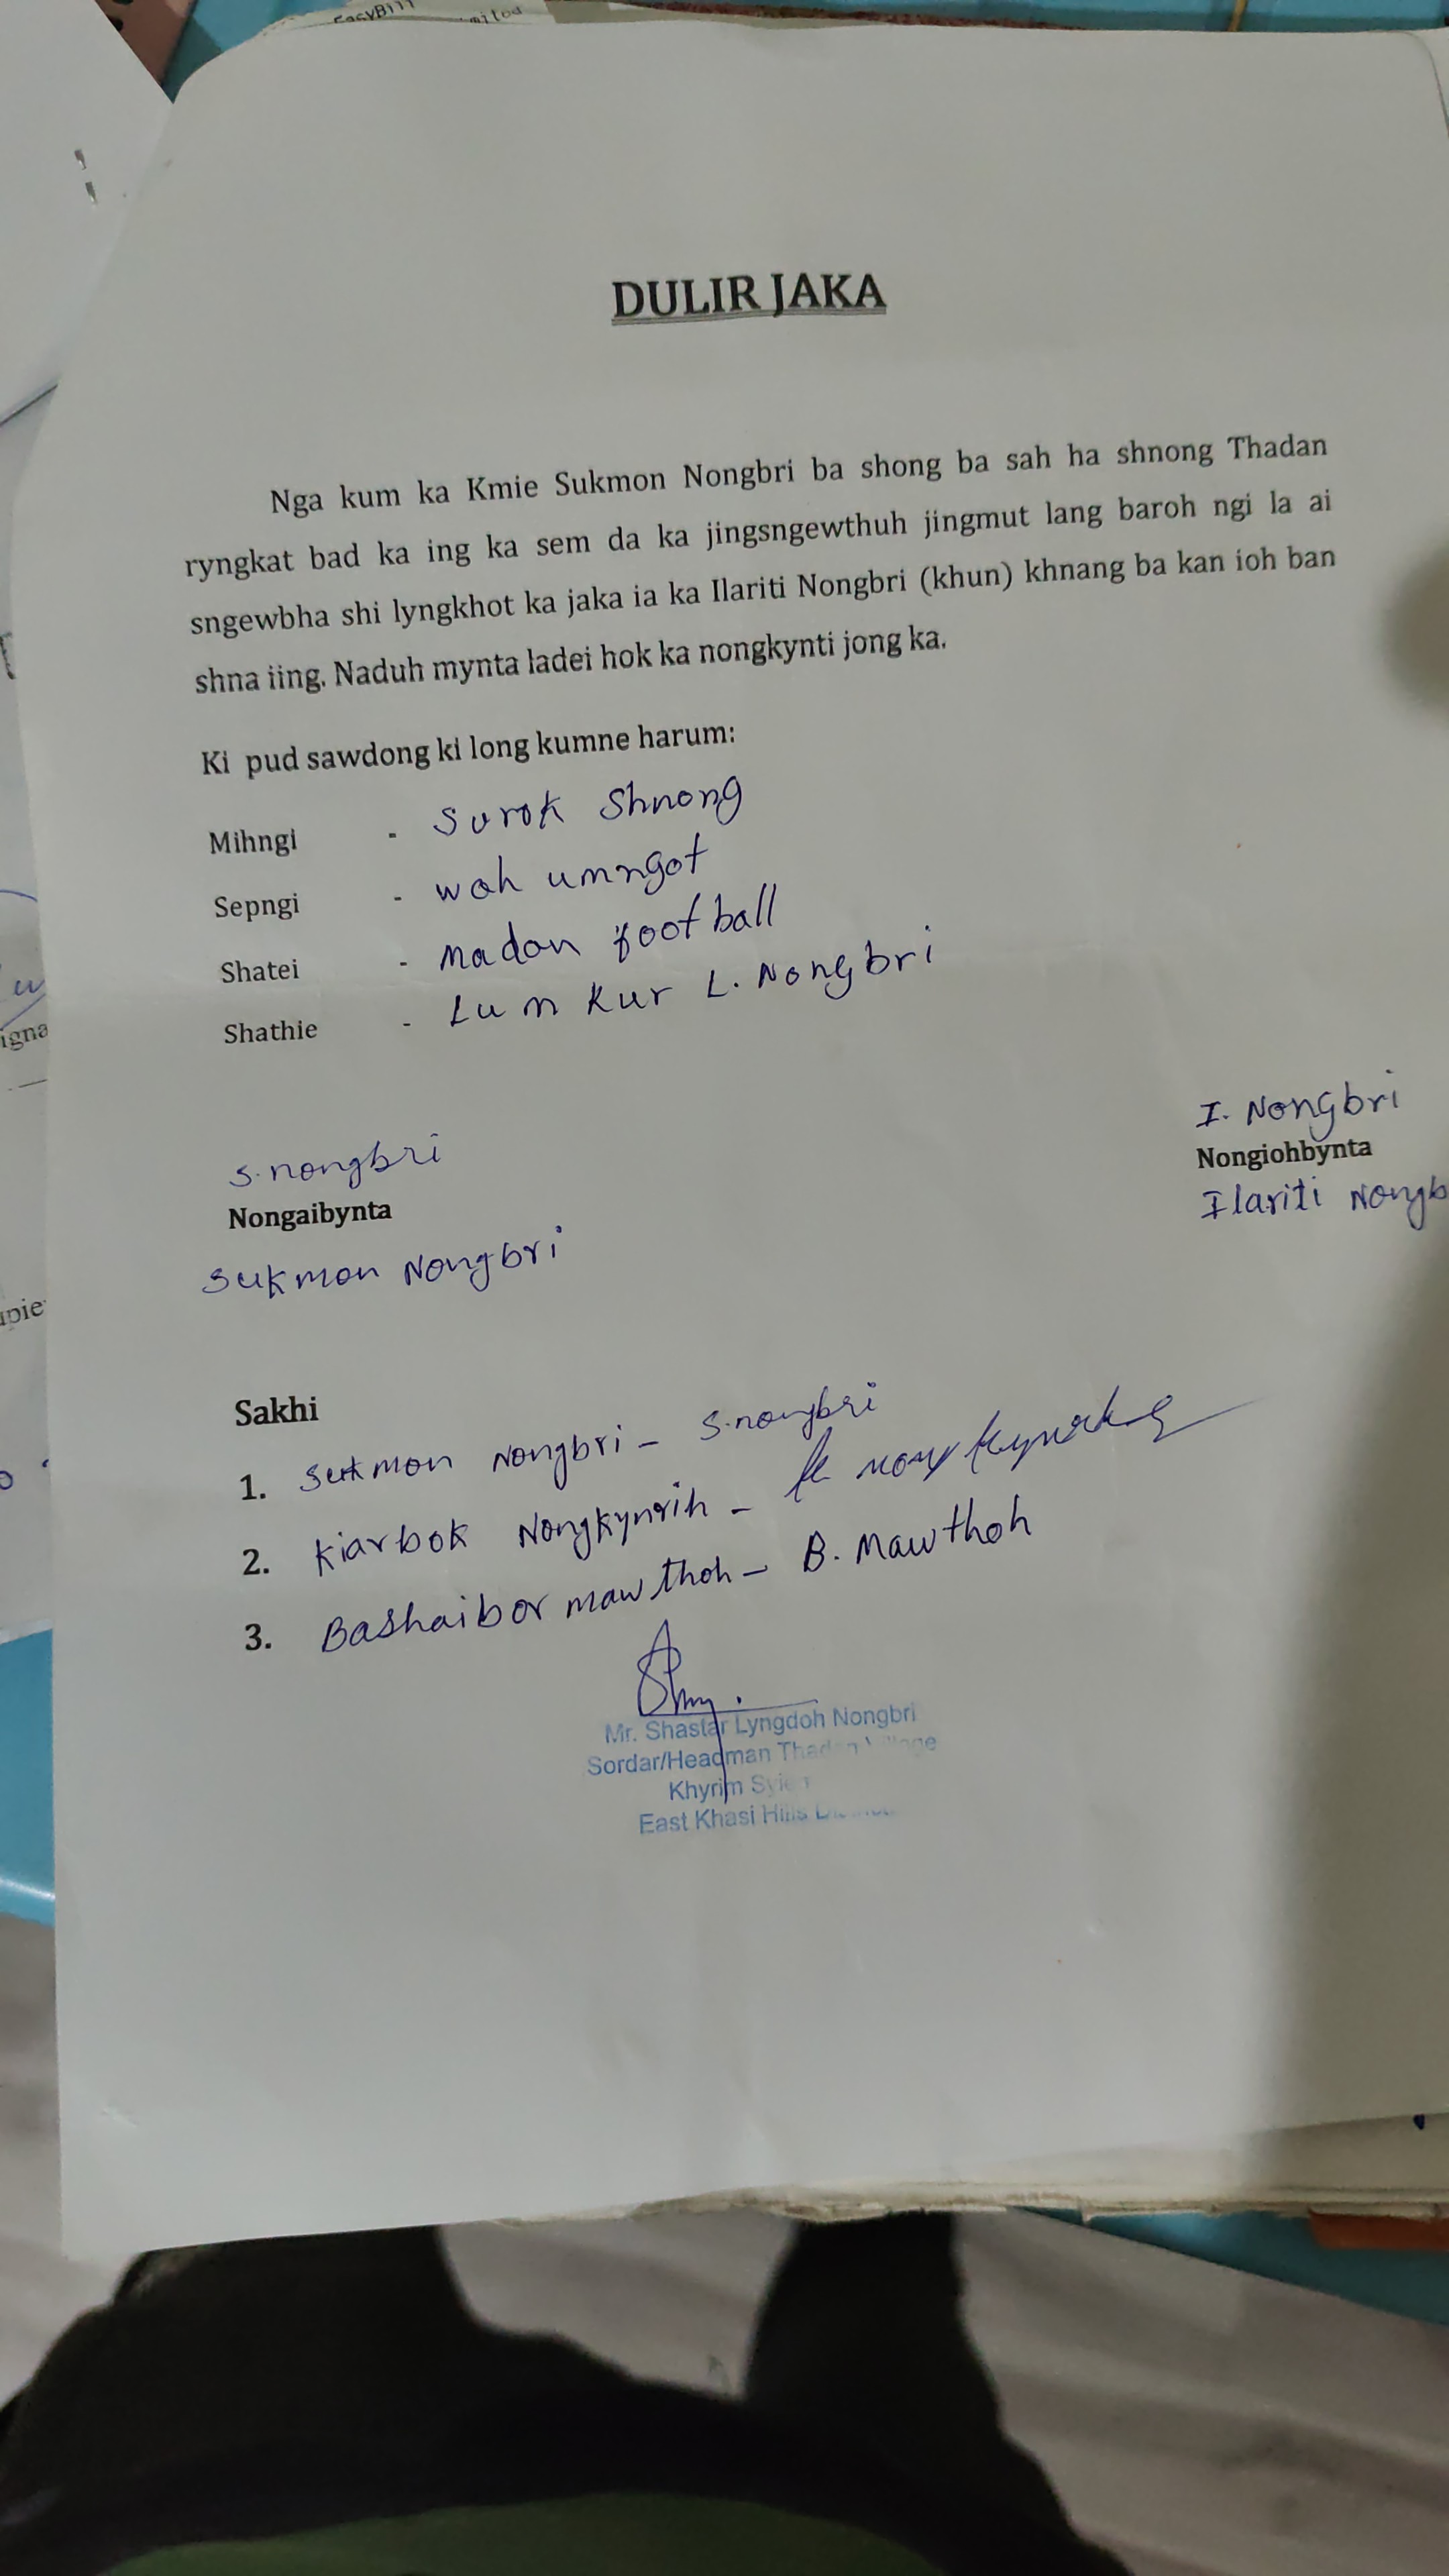 EasyBill
DULIR JAKA
Nga kum ka Kmie Sukmon Nongbri ba shong ba sah ha shnong Thadan
ryngkat bad ka ing ka sem da ka jingsngewthuh jingmut lang baroh ngi la ai
sngewbha shi lyngkhot ka jaka ia ka Ilariti Nongbri (khun) khnang ba kan ioh ban
shna iing. Naduh mynta ladei hok ka nongkynti jong ka.
Ki pud sawdong ki long kumne harum:
Mihngi - Surok Shnong
Sepngi - wah umngot
Shatei - Madan football
Shathie - Lum Kur L. Nongbri
S. nongbri
Nongaibynta
Sukmon Nongbri
I. Nongbri
Nongiohbynta
Ilariti Nongb
Sakhi
1. Sukmon Nongbri - S. nongbri
2. Kiarbok Nongkynrih -
3. Bashaibor mawthoh - B. Mawthoh
Mr. Shastar Lyngdoh Nongbri
Sordar/Headman Thadan Village
Khyrim
East Khasi Hills